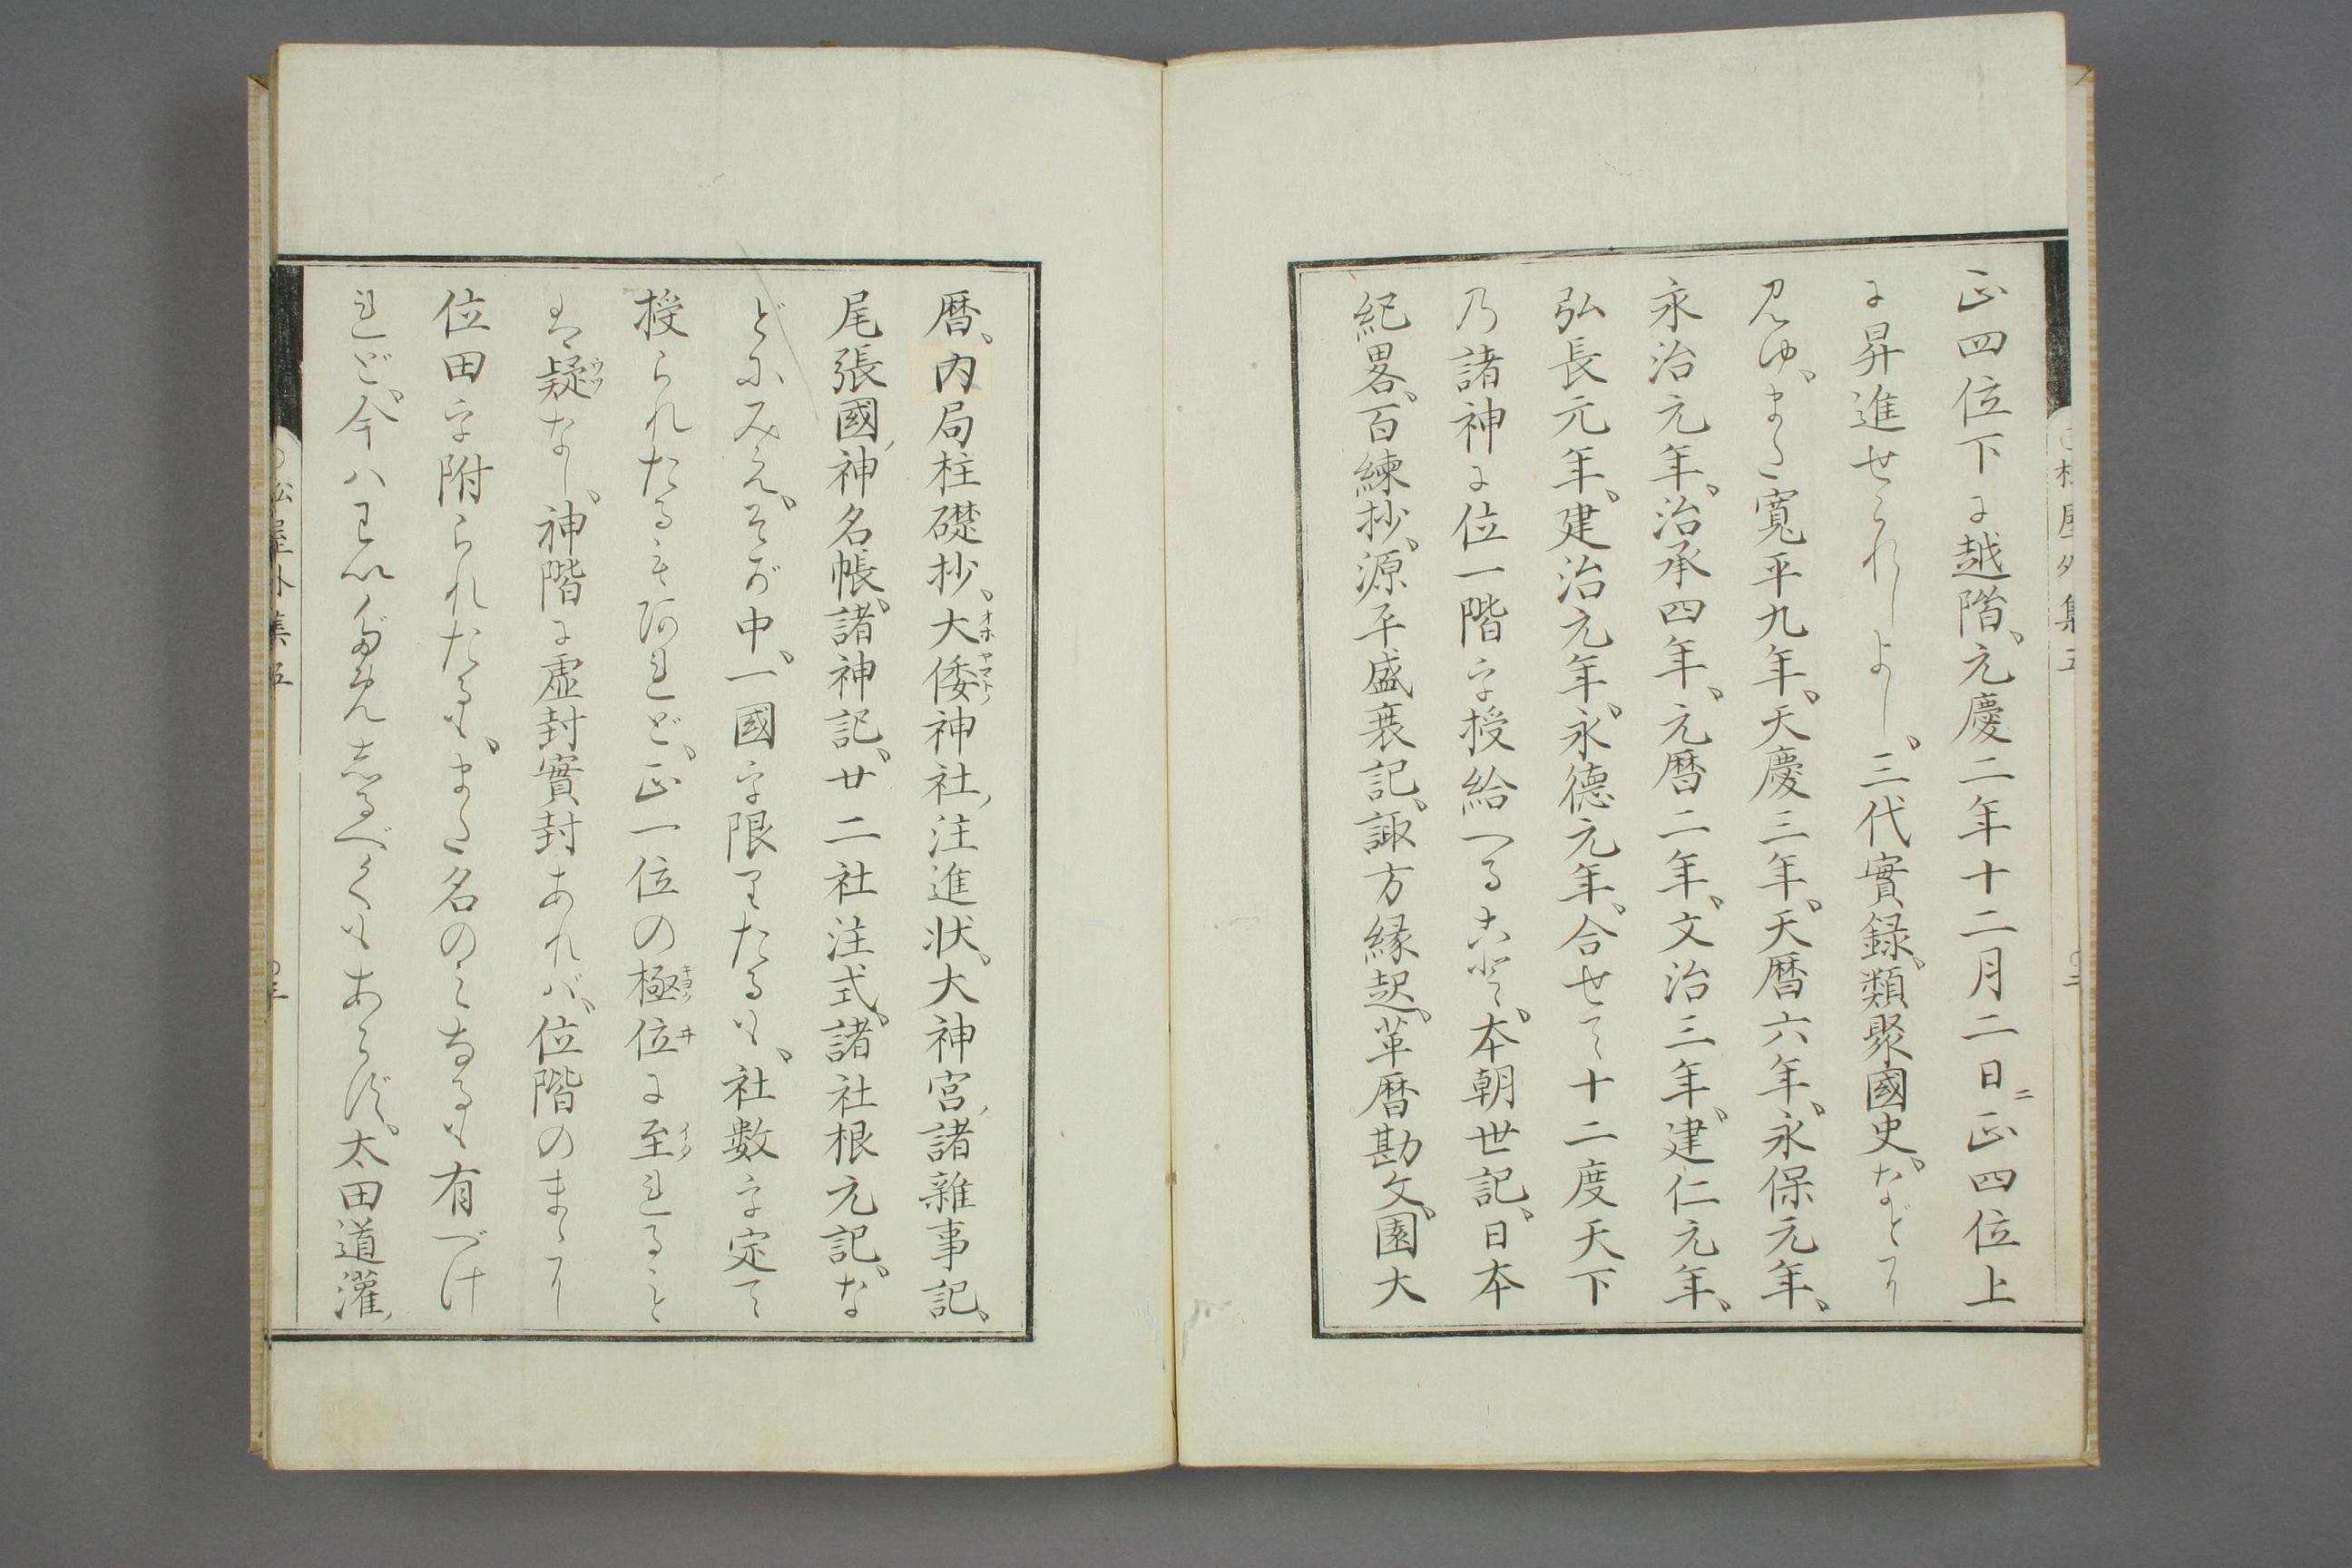 正四位下に越階、元慶二年十二月二日ニ正四位上
に昇進せられしよし、三代實録、類聚國史、などに
見ゆ、また寛平九年、天慶三年、天暦六年、永保元年、
永治元年、治承四年、元暦二年、文治三年、建仁元年、
弘長元年、建治元年、永德元年、合せて十二度天下
乃諸神に位一階を授給へること、本朝世記、日本
紀畧、百練抄、源平盛衰記、諏方縁起、革暦勘文、園大
暦、内局柱礎抄、大倭神社注進状、大神宮諸雜事記、
尾張國神名帳、諸神記、廿二社注式、諸社根元記、な
どにみえ、そが中、一國を限りたるも、社數を定て
授られたるもあれど、正一位の極位に至れること
は疑なし、神階に虚封實封あれバ、位階のまゝに
位田を附られたるも、また名のみなるも有べけ
れど、今ハわいだめしるべくもあらず、太田道灌
松屋外集五